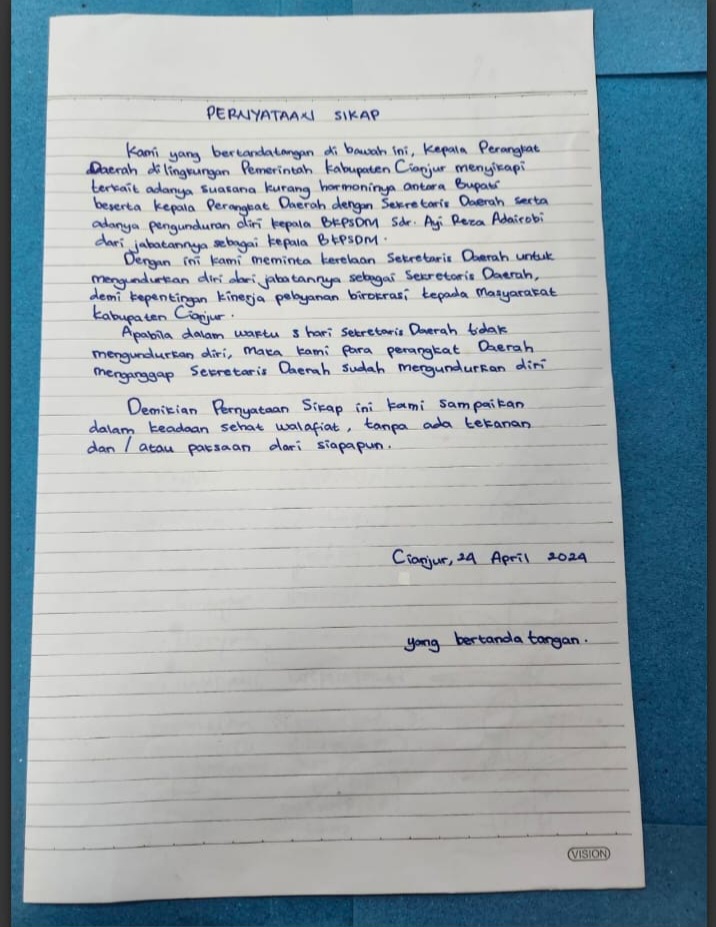 PERNYATAAN SIKAP
Kami yang bertandatangan di bawah ini, Kepala Perangkat
Daerah di lingkungan Pemerintah Kabupaten Cianjur menyikapi
terkait adanya suasana kurang harmoninya antara Bupati
beserta Kepala Perangkat Daerah dengan Sekretaris Daerah serta
adanya pengunduran diri kepala BKPSDM Sdr. Ayi Reza Adairobi
dari jabatannya sebagai kepala BKPSDM.
Dengan ini kami meminta kerelaan Sekretaris Daerah untuk
mengundurkan diri dari jabatannya sebagai Sekretaris Daerah,
demi kepentingan kinerja pelayanan birokrasi kepada Masyarakat
Kabupaten Cianjur.
Apabila dalam waktu 3 hari Sekretaris Daerah tidak
mengundurkan diri, Maka kami para perangkat Daerah
menganggap Sekretaris Daerah sudah mengundurkan diri
Demikian Pernyataan Sikap ini kami sampaikan
dalam keadaan sehat walafiat, tanpa ada tekanan
dan / atau paksaan dari siapapun.
Cianjur, 24 April 2024
yang bertanda tangan.
VISION